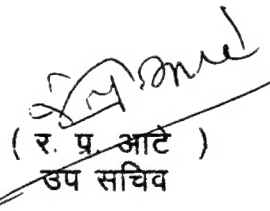 ( र. प्र. आटे )
उप सचिव